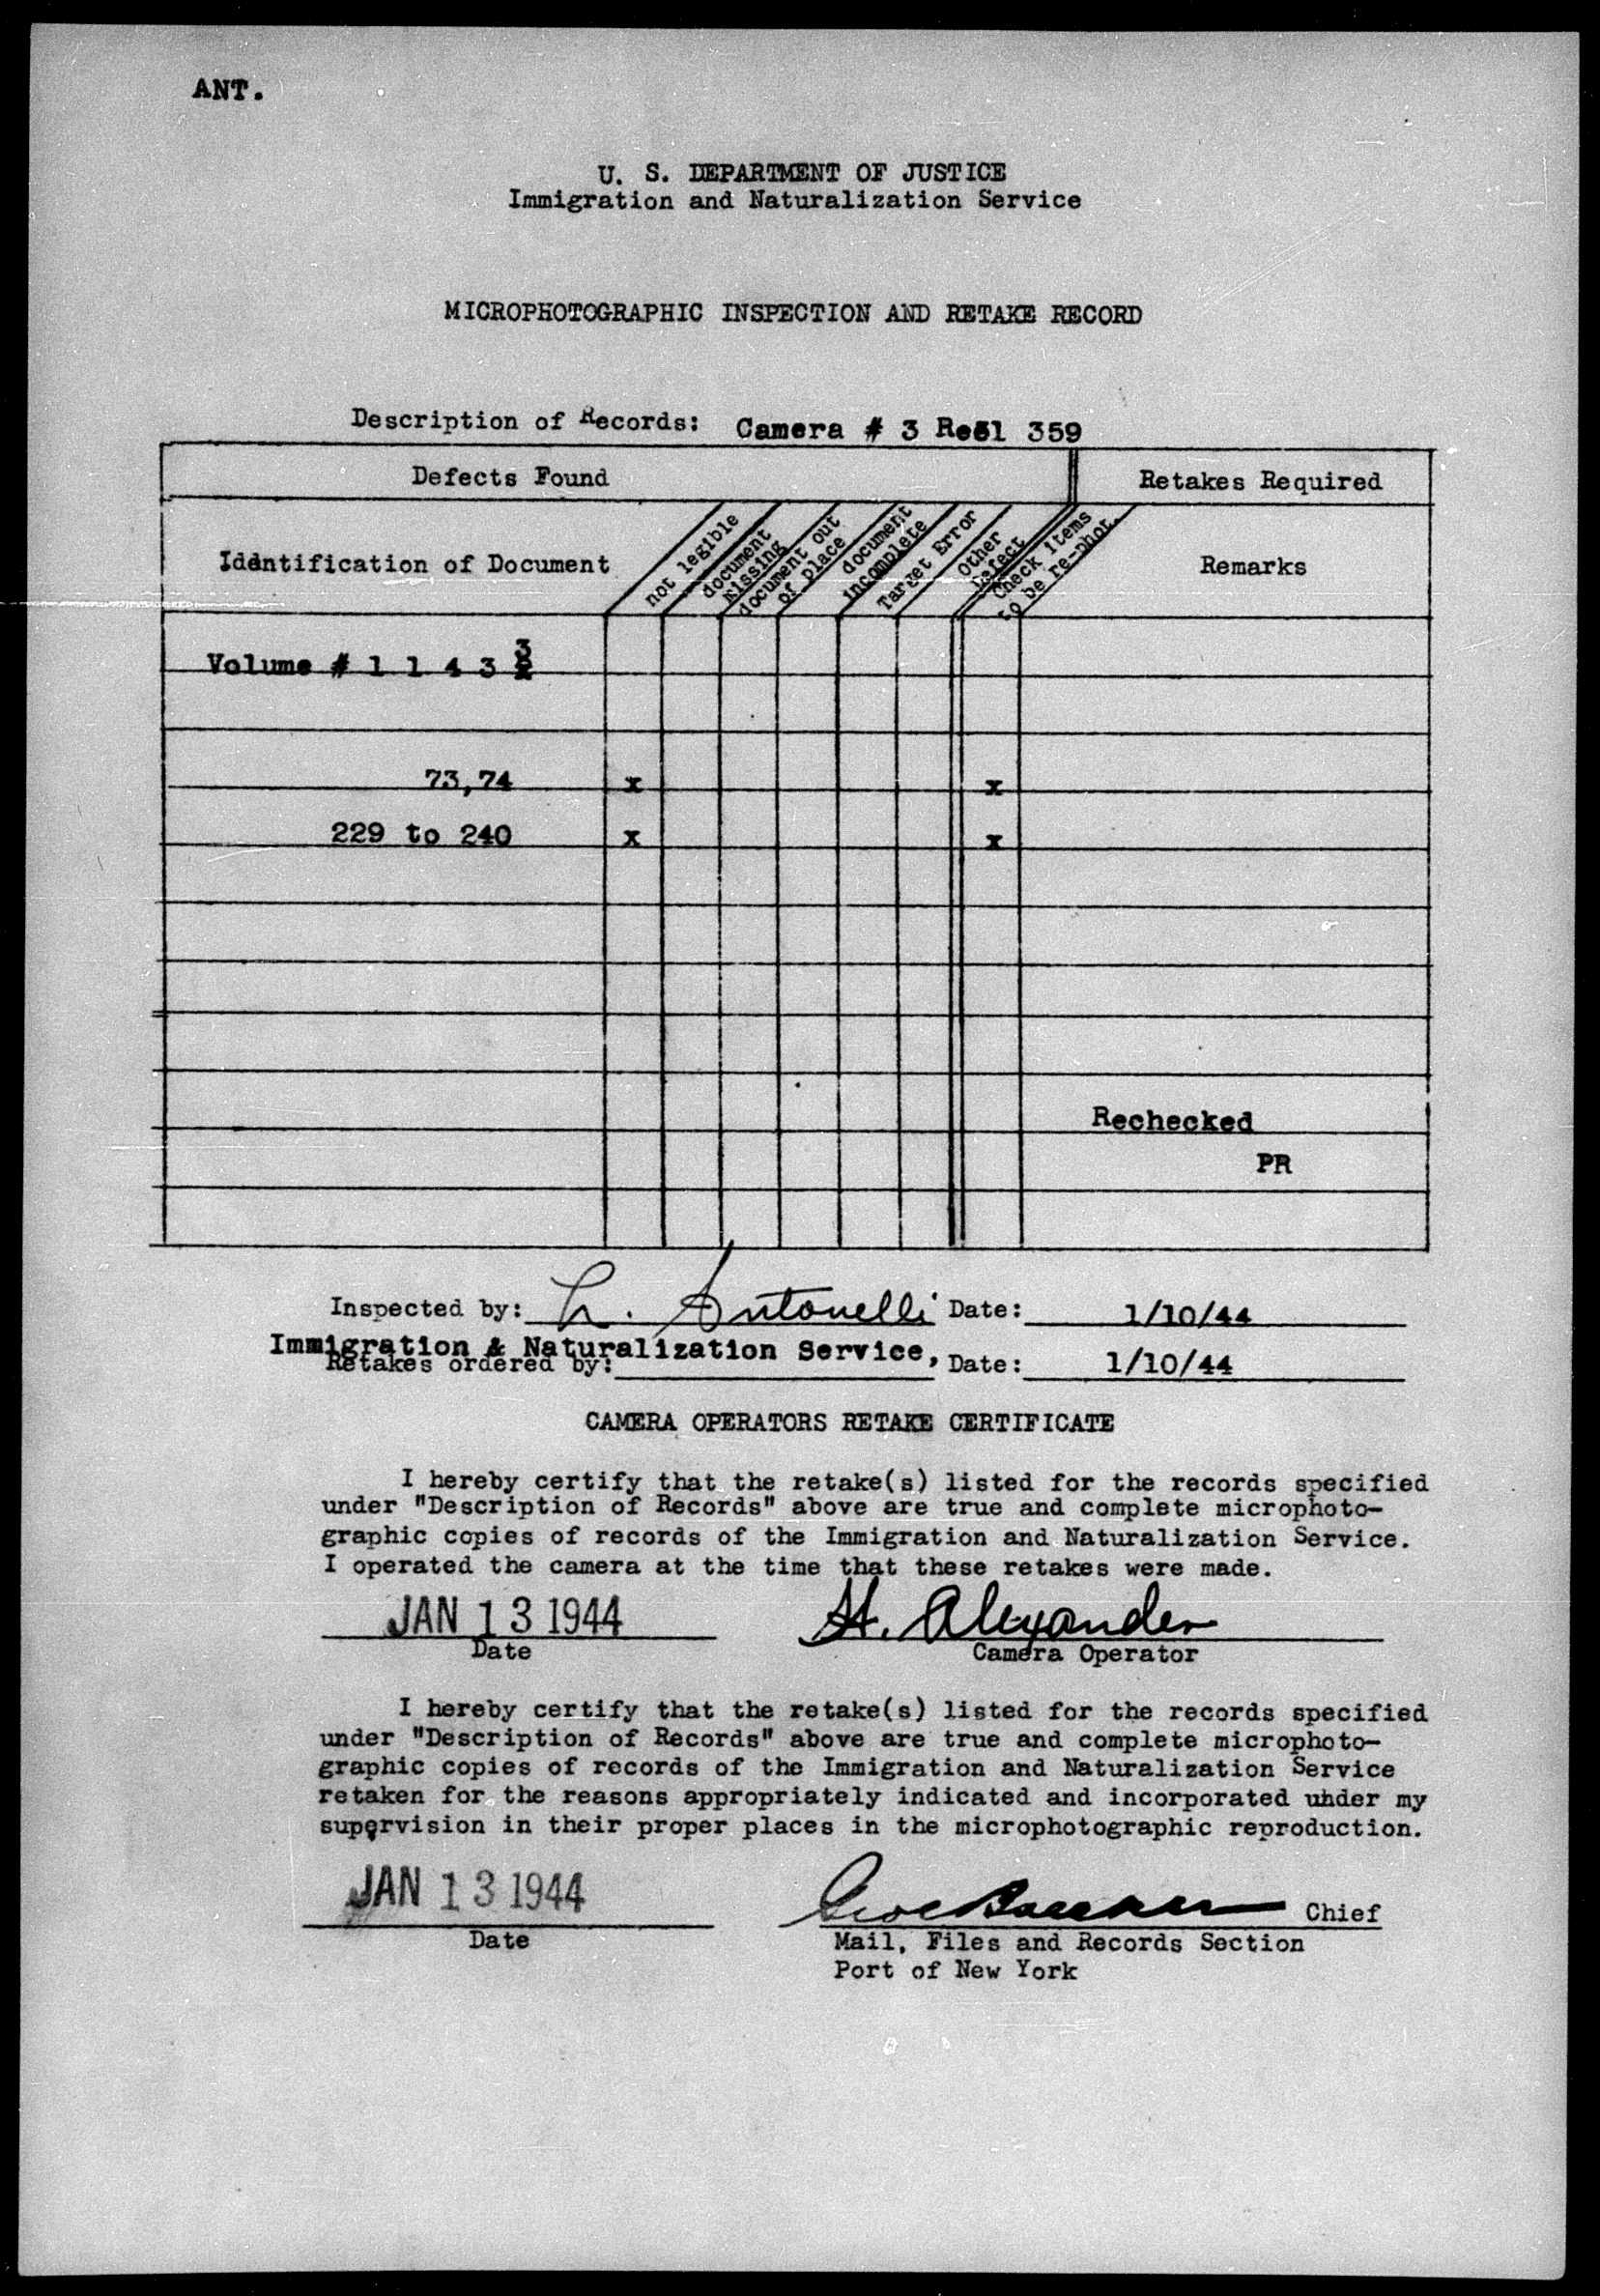 ANT.
U. S. DEPARTMENT OF JUSTICE
Immigration and Naturalization Service
MICROPHOTOGRAPHIC INSPECTION AND RETAKE RECORD
Description of Records: Camera # 3 Reel 359
Defects Found
Retakes Required
Identification of Document
not legible
document
missing
document out
of place
document
incomplete
Target Error
Other
Defect
Check items
to be re-phot.
Remarks
Volume # 1 1 4 3 3
73,74 x x
229 to 240 x x
Rechecked
PR
Inspected by: L. Antonelli Date: 1/10/44
Immigration & Naturalization Service,
Retakes ordered by: Date: 1/10/44
CAMERA OPERATORS RETAKE CERTIFICATE
I hereby certify that the retake(s) listed for the records specified
under "Description of Records" above are true and complete microphoto-
graphic copies of records of the Immigration and Naturalization Service.
I operated the camera at the time that these retakes were made.
JAN 13 1944 H. Alexander
Date Camera Operator
I hereby certify that the retake(s) listed for the records specified
under "Description of Records" above are true and complete microphoto-
graphic copies of records of the Immigration and Naturalization Service
retaken for the reasons appropriately indicated and incorporated under my
supervision in their proper places in the microphotographic reproduction.
JAN 13 1944 Chief
Date Mail, Files and Records Section
Port of New York